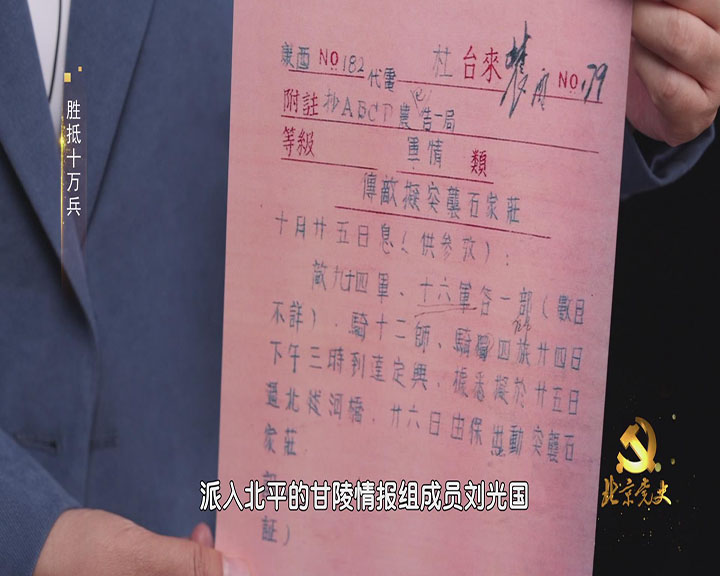 胜抵十万兵
康西 NO 182 代電 杜台來 NO. 79
附註 抄ABCD 農告一局
等級 軍情 類
傳敵擬突襲石家莊
十月廿五日息（供參攷）：
敵九十四軍、十六軍各一部（數目
不詳）．騎十二師、騎四旅廿四日
下午三時到達定興、據悉擬於廿五日
過北河橋．廿六日由保出動突襲石
家莊．
証）
派入北平的甘陵情报组成员刘光国
北京党史